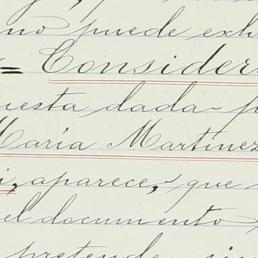 no puede exh
= Consider
uesta dada - p
María Martínez
i, aparece, - que
el documento
pretende